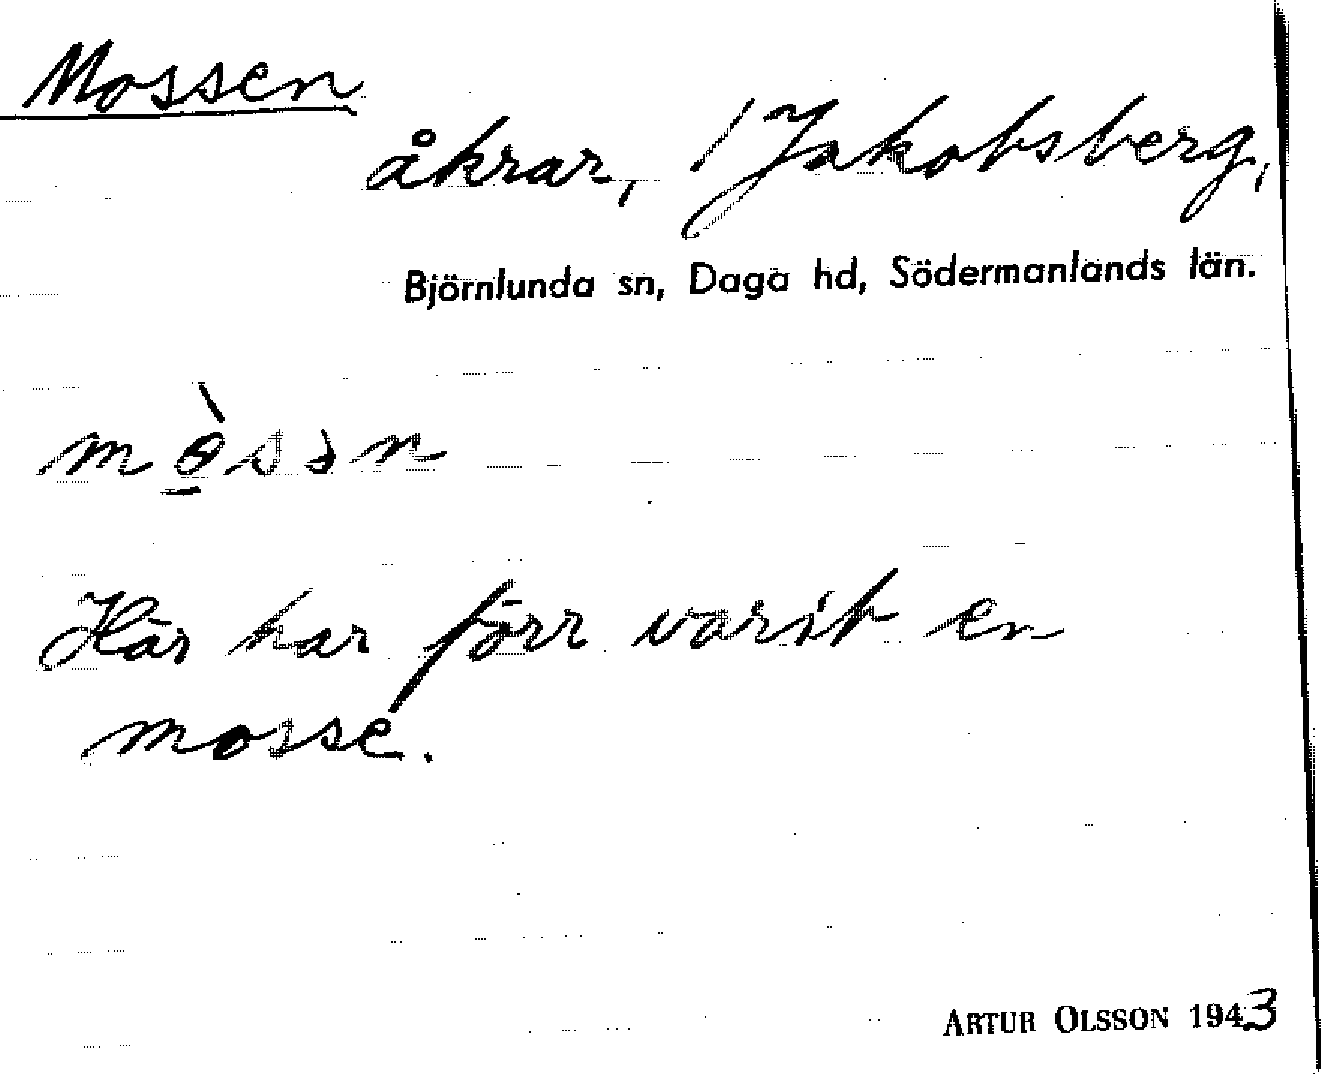 Mossen
åkrar, / Jakobsberg,
Björnlunda sn, Daga hd, Södermanlands län.
mò̱sən
Här har förr varit en
mosse.
ARTUR OLSSON 1943